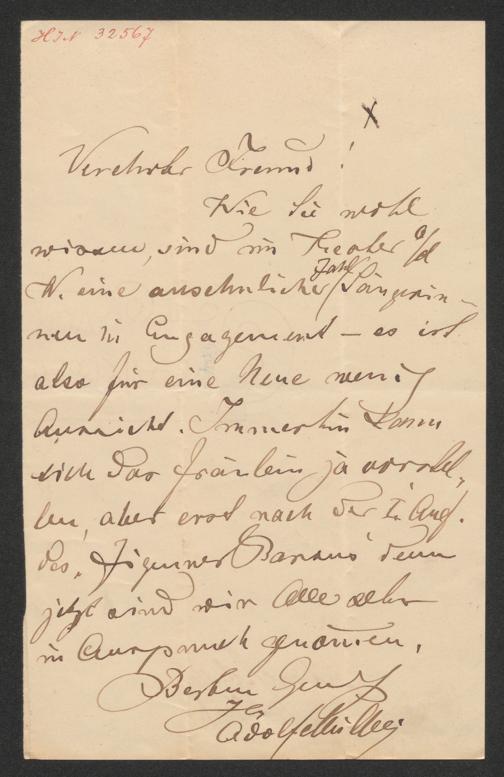 H.I.N. 32567
x
Verehrter Freund!
Wie Sie wohl
wissen, sind im Theater a/d
W. eine ansehnliche Zahl Sängerin-
nen in Engagement – es ist
also für eine Neue wenig
Aussicht. Immerhin kann
sich das Fräulein ja vorstel-
len, aber erst nach der I. Auf.
des „Zigeuner Barons" denn
jetzt sind wir Alle sehr
in Anspruch genommen.
Besten Gruß
Ihr
Adolf Müller